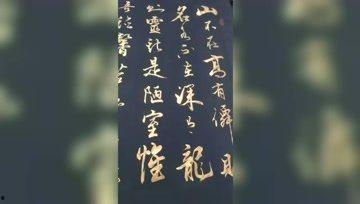 山不在高有僊則
名水不在深有龍
則靈斯是陋室惟
吾德馨